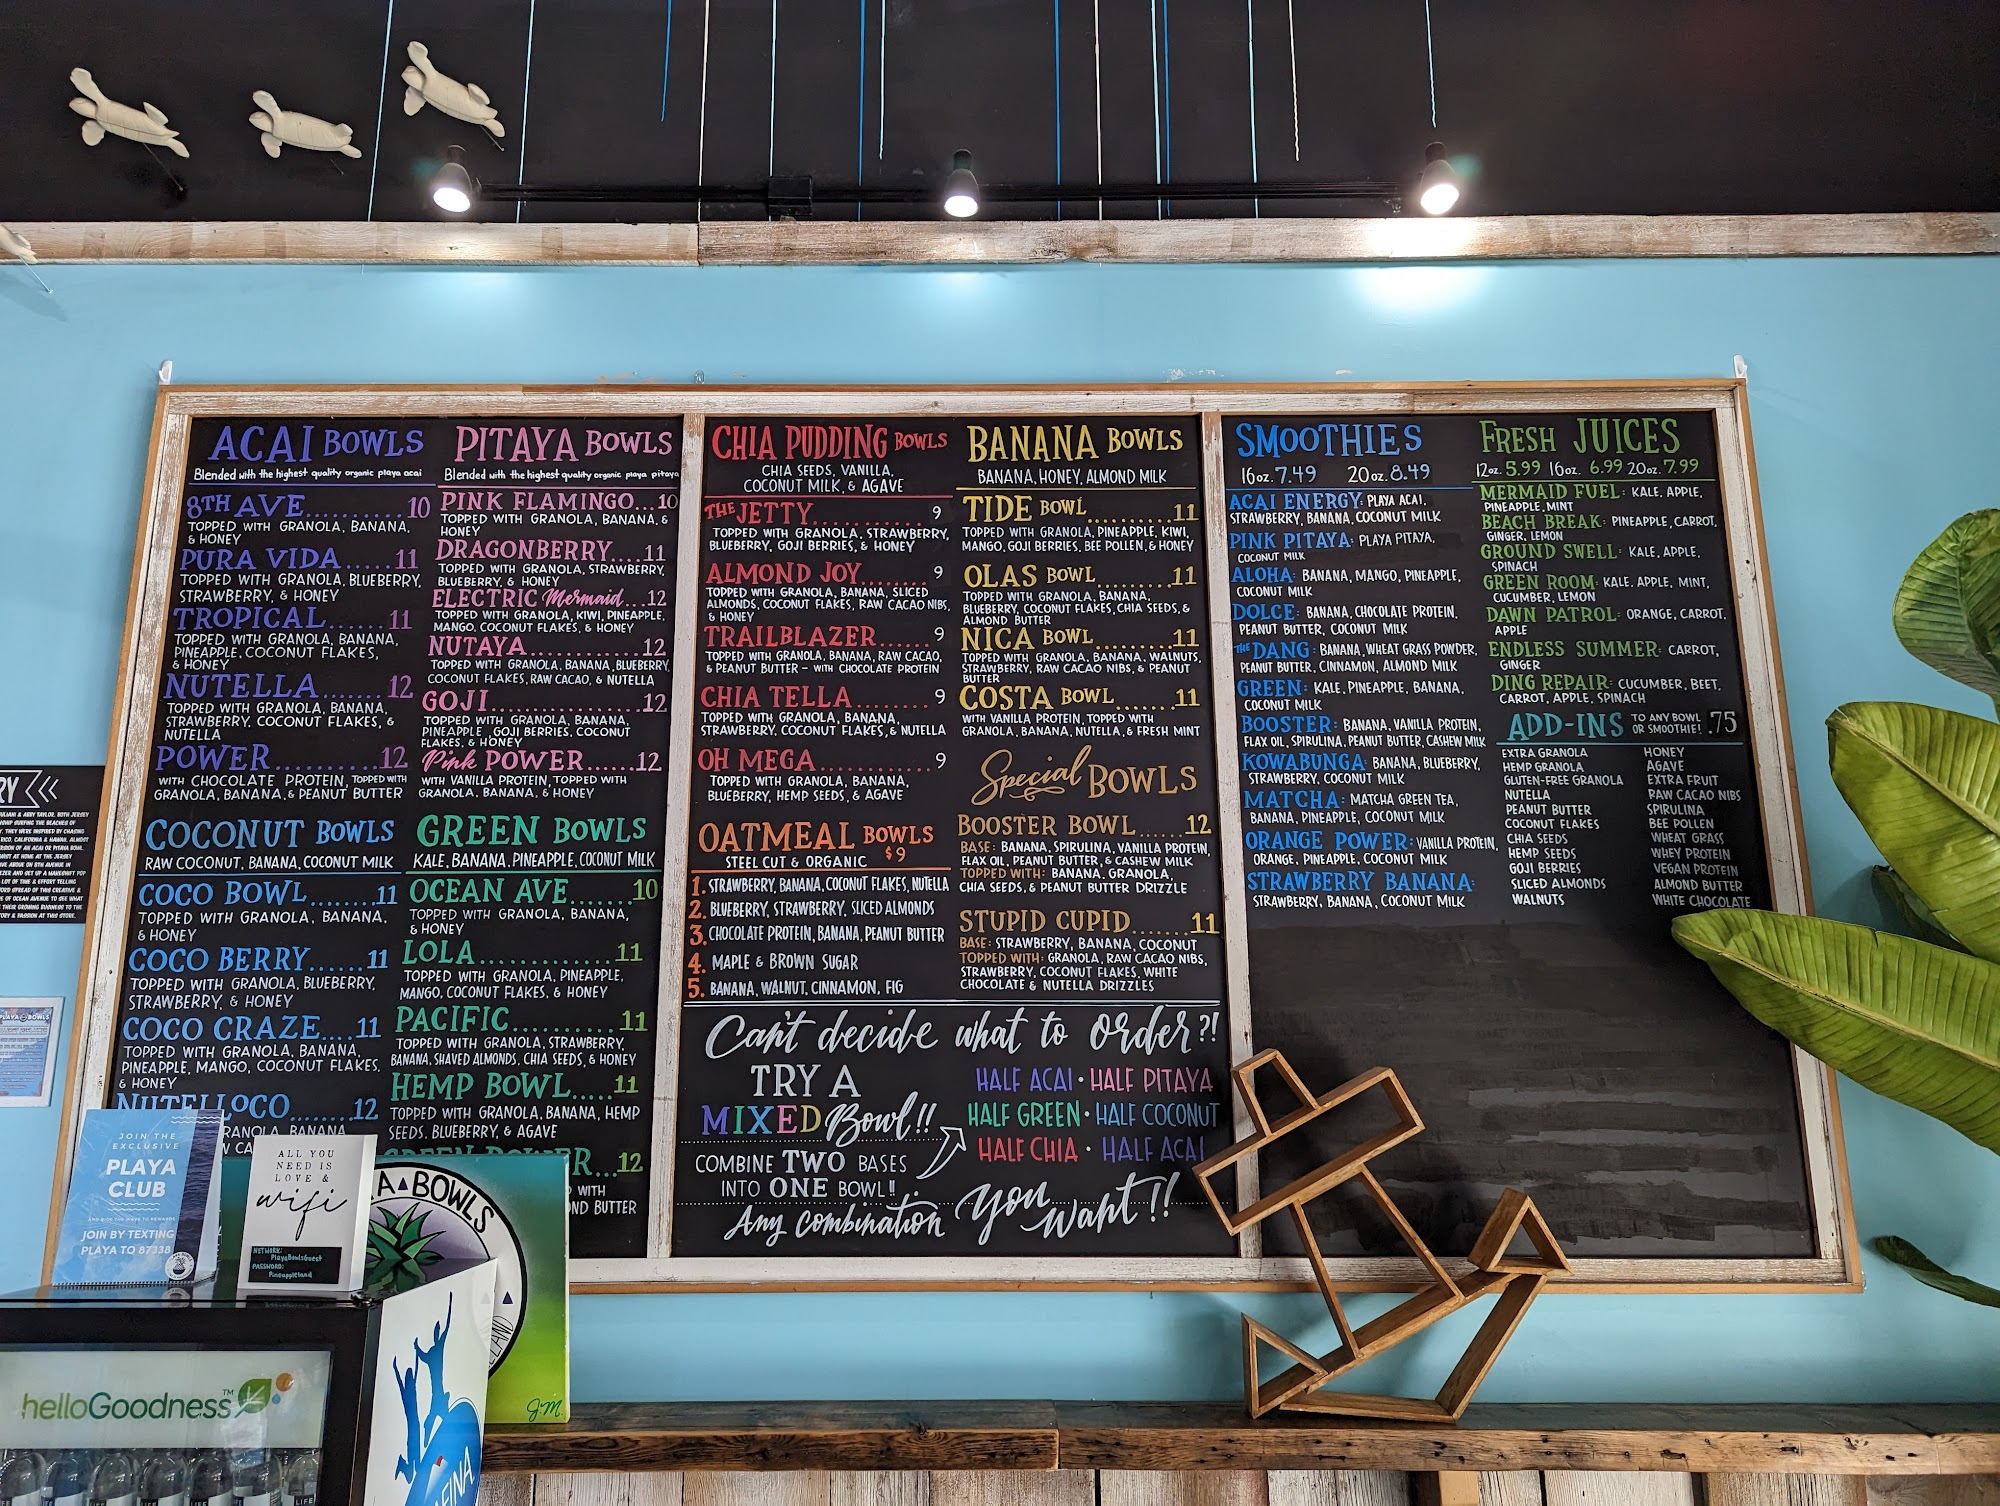 ACAI BOWLS
Blended with the highest quality organic playa acai
8TH AVE............10
TOPPED WITH GRANOLA, BANANA,
& HONEY
PURA VIDA.....11
TOPPED WITH GRANOLA, BLUEBERRY,
STRAWBERRY, & HONEY
TROPICAL......11
TOPPED WITH GRANOLA, BANANA,
PINEAPPLE, COCONUT FLAKES,
& HONEY
NUTELLA.......12
TOPPED WITH GRANOLA, BANANA,
STRAWBERRY, COCONUT FLAKES, &
NUTELLA
POWER............12
WITH CHOCOLATE PROTEIN, TOPPED WITH
GRANOLA, BANANA, & PEANUT BUTTER
COCONUT BOWLS
RAW COCONUT, BANANA, COCONUT MILK
COCO BOWL.......11
TOPPED WITH GRANOLA, BANANA,
& HONEY
COCO BERRY......11
TOPPED WITH GRANOLA, BLUEBERRY,
STRAWBERRY, & HONEY
COCO CRAZE....11
TOPPED WITH GRANOLA, BANANA,
PINEAPPLE, MANGO, COCONUT FLAKES,
& HONEY
NUTELLOCO.......12
GRANOLA, BANANA
PITAYA BOWLS
Blended with the highest quality organic playa pitaya
PINK FLAMINGO...10
TOPPED WITH GRANOLA, BANANA, &
HONEY
DRAGONBERRY....11
TOPPED WITH GRANOLA, STRAWBERRY,
BLUEBERRY, & HONEY
ELECTRIC Mermaid...12
TOPPED WITH GRANOLA, KIWI, PINEAPPLE,
MANGO, COCONUT FLAKES, & HONEY
NUTAYA............12
TOPPED WITH GRANOLA, BANANA, BLUEBERRY,
COCONUT FLAKES, RAW CACAO, & NUTELLA
GOJI................12
TOPPED WITH GRANOLA, BANANA,
PINEAPPLE, GOJI BERRIES, COCONUT
FLAKES, & HONEY
Pink POWER......12
WITH VANILLA PROTEIN, TOPPED WITH
GRANOLA, BANANA, & HONEY
GREEN BOWLS
KALE, BANANA, PINEAPPLE, COCONUT MILK
OCEAN AVE.......10
TOPPED WITH GRANOLA, BANANA,
& HONEY
LOLA..............11
TOPPED WITH GRANOLA, PINEAPPLE,
MANGO, COCONUT FLAKES, & HONEY
PACIFIC...........11
TOPPED WITH GRANOLA, STRAWBERRY,
BANANA, SHAVED ALMONDS, CHIA SEEDS, & HONEY
HEMP BOWL.....11
TOPPED WITH GRANOLA, BANANA, HEMP
SEEDS, BLUEBERRY, & AGAVE
GREEN POWER...12
WITH
OND BUTTER
CHIA PUDDING BOWLS
CHIA SEEDS, VANILLA,
COCONUT MILK, & AGAVE
THE JETTY............. 9
TOPPED WITH GRANOLA, STRAWBERRY,
BLUEBERRY, GOJI BERRIES, & HONEY
ALMOND JOY........ 9
TOPPED WITH GRANOLA, BANANA, SLICED
ALMONDS, COCONUT FLAKES, RAW CACAO NIBS,
& HONEY
TRAILBLAZER....... 9
TOPPED WITH GRANOLA, BANANA, RAW CACAO,
& PEANUT BUTTER - WITH CHOCOLATE PROTEIN
CHIA TELLA.......... 9
TOPPED WITH GRANOLA, BANANA,
STRAWBERRY, COCONUT FLAKES, & NUTELLA
OH MEGA............... 9
TOPPED WITH GRANOLA, BANANA,
BLUEBERRY, HEMP SEEDS, & AGAVE
OATMEAL BOWLS
STEEL CUT & ORGANIC $9
1. STRAWBERRY, BANANA, COCONUT FLAKES, NUTELLA
2. BLUEBERRY, STRAWBERRY, SLICED ALMONDS
3. CHOCOLATE PROTEIN, BANANA, PEANUT BUTTER
4. MAPLE & BROWN SUGAR
5. BANANA, WALNUT, CINNAMON, FIG
BANANA BOWLS
BANANA, HONEY, ALMOND MILK
TIDE BOWL..........11
TOPPED WITH GRANOLA, PINEAPPLE, KIWI,
MANGO, GOJI BERRIES, BEE POLLEN, & HONEY
OLAS BOWL.........11
TOPPED WITH GRANOLA, BANANA,
BLUEBERRY, COCONUT FLAKES, CHIA SEEDS, &
ALMOND BUTTER
NICA BOWL.........11
TOPPED WITH GRANOLA, BANANA, WALNUTS,
STRAWBERRY, RAW CACAO NIBS, & PEANUT
BUTTER
COSTA BOWL.......11
WITH VANILLA PROTEIN, TOPPED WITH
GRANOLA, BANANA, NUTELLA, & FRESH MINT
Special BOWLS
BOOSTER BOWL.....12
BASE: BANANA, SPIRULINA, VANILLA PROTEIN,
FLAX OIL, PEANUT BUTTER, & CASHEW MILK
TOPPED WITH: BANANA, GRANOLA,
CHIA SEEDS, & PEANUT BUTTER DRIZZLE
STUPID CUPID.......11
BASE: STRAWBERRY, BANANA, COCONUT
TOPPED WITH: GRANOLA, RAW CACAO NIBS,
STRAWBERRY, COCONUT FLAKES, WHITE
CHOCOLATE & NUTELLA DRIZZLES
Can't decide what to order?!
TRY A
MIXED Bowl!!
COMBINE TWO BASES
INTO ONE BOWL!!
HALF ACAI • HALF PITAYA
HALF GREEN • HALF COCONUT
HALF CHIA • HALF ACAI
Any combination you want!!
SMOOTHIES
16oz. 7.49 20oz. 8.49
ACAI ENERGY: PLAYA ACAI,
STRAWBERRY, BANANA, COCONUT MILK
PINK PITAYA: PLAYA PITAYA,
COCONUT MILK
ALOHA: BANANA, MANGO, PINEAPPLE,
COCONUT MILK
DOLCE: BANANA, CHOCOLATE PROTEIN,
PEANUT BUTTER, COCONUT MILK
THE DANG: BANANA, WHEAT GRASS POWDER,
PEANUT BUTTER, CINNAMON, ALMOND MILK
GREEN: KALE, PINEAPPLE, BANANA,
COCONUT MILK
BOOSTER: BANANA, VANILLA PROTEIN,
FLAX OIL, SPIRULINA, PEANUT BUTTER, CASHEW MILK
KOWABUNGA: BANANA, BLUEBERRY,
STRAWBERRY, COCONUT MILK
MATCHA: MATCHA GREEN TEA,
BANANA, PINEAPPLE, COCONUT MILK
ORANGE POWER: VANILLA PROTEIN,
ORANGE, PINEAPPLE, COCONUT MILK
STRAWBERRY BANANA:
STRAWBERRY, BANANA, COCONUT MILK
FRESH JUICES
12oz. 5.99 16oz. 6.99 20oz. 7.99
MERMAID FUEL: KALE, APPLE,
PINEAPPLE, MINT
BEACH BREAK: PINEAPPLE, CARROT,
GINGER, LEMON
GROUND SWELL: KALE, APPLE,
SPINACH
GREEN ROOM: KALE, APPLE, MINT,
CUCUMBER, LEMON
DAWN PATROL: ORANGE, CARROT,
APPLE
ENDLESS SUMMER: CARROT,
GINGER
DING REPAIR: CUCUMBER, BEET,
CARROT, APPLE, SPINACH
ADD-INS TO ANY BOWL OR SMOOTHIE! .75
EXTRA GRANOLA
HEMP GRANOLA
GLUTEN-FREE GRANOLA
NUTELLA
PEANUT BUTTER
COCONUT FLAKES
CHIA SEEDS
HEMP SEEDS
GOJI BERRIES
SLICED ALMONDS
WALNUTS
HONEY
AGAVE
EXTRA FRUIT
RAW CACAO NIBS
SPIRULINA
BEE POLLEN
WHEAT GRASS
WHEY PROTEIN
VEGAN PROTEIN
ALMOND BUTTER
WHITE CHOCOLATE
JOIN THE
EXCLUSIVE
PLAYA
CLUB
JOIN BY TEXTING
PLAYA TO 87338
ALL YOU
NEED IS
LOVE &
wifi
NETWORK:
PlayaBowlsGuest
PASSWORD:
Pineappleland
A BOWLS
ELAND
J.M.
helloGoodness™
LIFE
PLAYA BOWLS